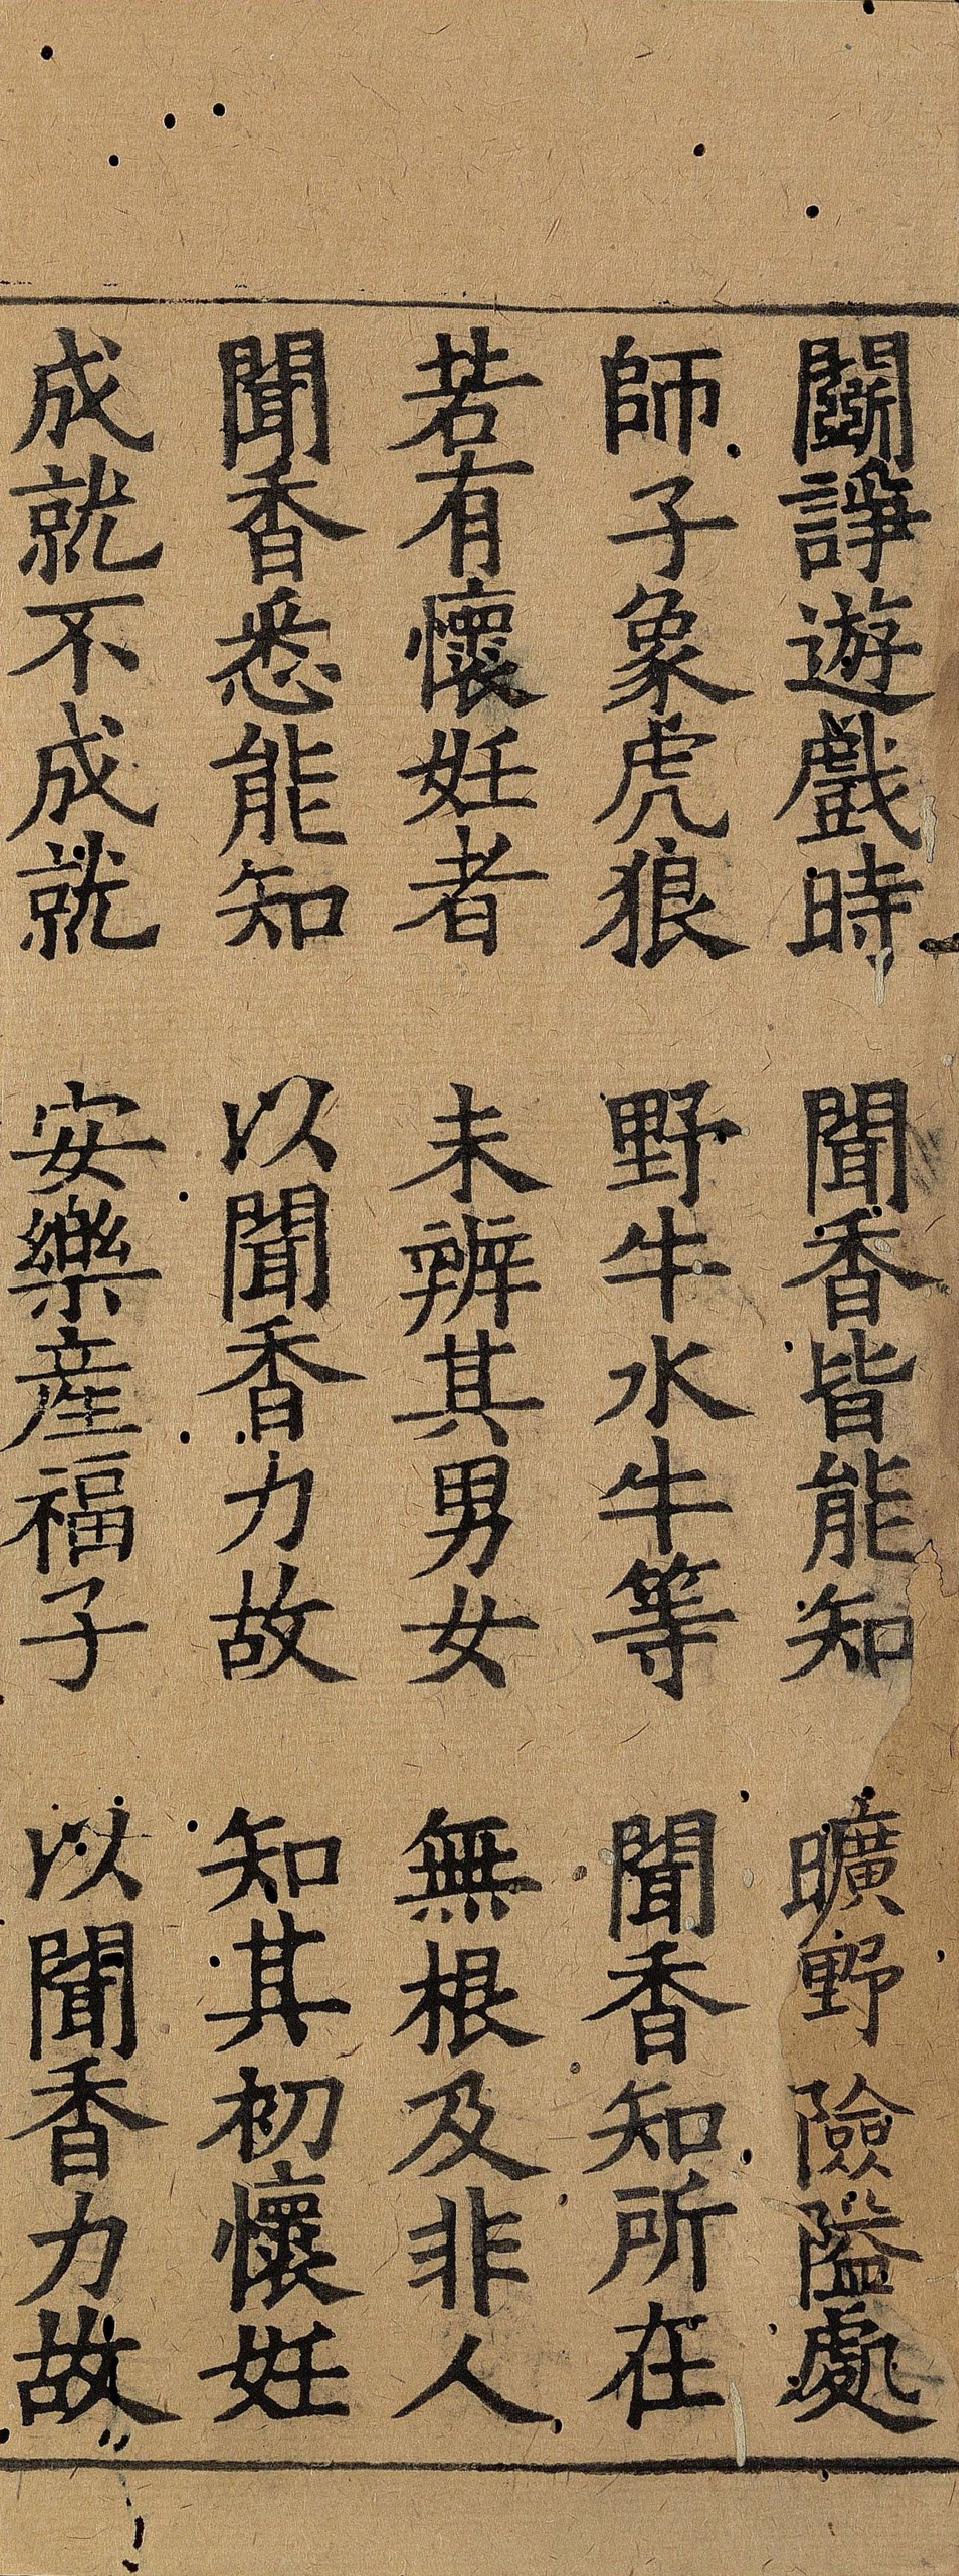 鬭諍遊戲時 聞香皆能知 曠野險隘處
師子象虎狼 野牛水牛等 聞香知所在
若有懷妊者 未辨其男女 無根及非人
聞香悉能知 以聞香力故 知其初懷妊
成就不成就 安樂産福子 以聞香力故